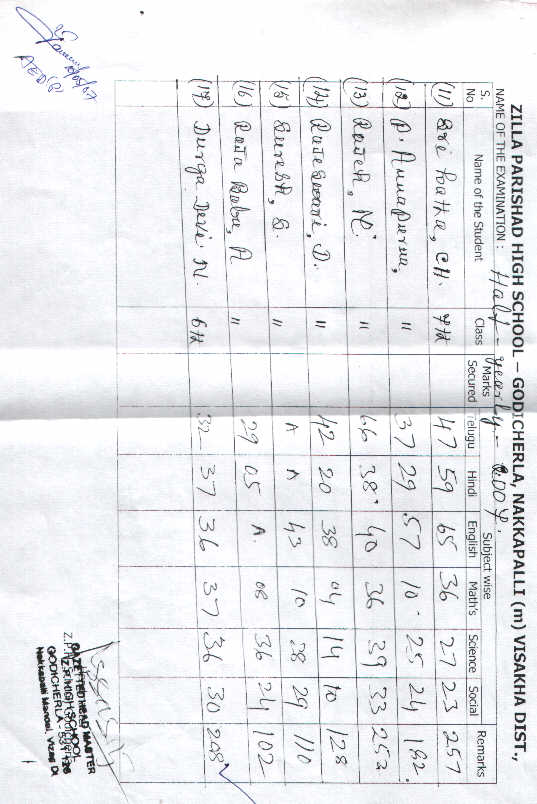 ZILLA PARISHAD HIGH SCHOOL – GODICHERLA, NAKKAPALLI (m) VISAKHA DIST.,
NAME OF THE EXAMINATION : Half-yearly - 2007.
S. No Name of the Student Class Marks Secured Subject wise Remarks
Telugu Hindi English Math's Science Social
(11) Sri Latha, CH. 7th 47 59 65 36 27 23 257
(12) P. Annapurna, " 37 29 57 10 25 24 182
(13) Rajesh, M. " 66 38 40 36 39 33 252
(14) Rajeswari, D. " 42 20 38 04 14 10 128
(15) Suresh, S. " A A 43 10 28 29 110
(16) Raja Babu, A " 29 05 A. 08 36 24 102
(17) Durga Devi. N. 6th 32 37 36 37 36 30 208
GAZETTED HEAD MASTER
Z.P. HIGH SCHOOL
GODICHERLA
Nakkapalli Mandal, Vizag Dt